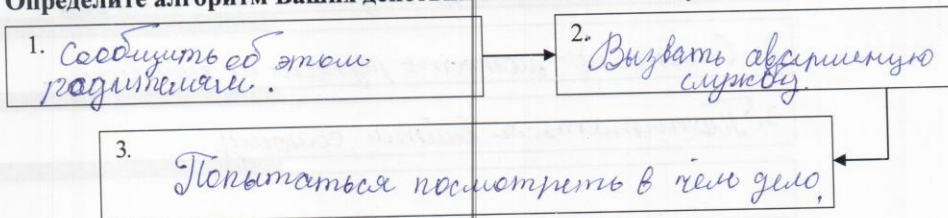 Определите алгоритм Ваших
1. Сообщить об этом
родителям.
2. Вызвать аварийную
службу.
3.
Попытаться посмотреть в чём дело.